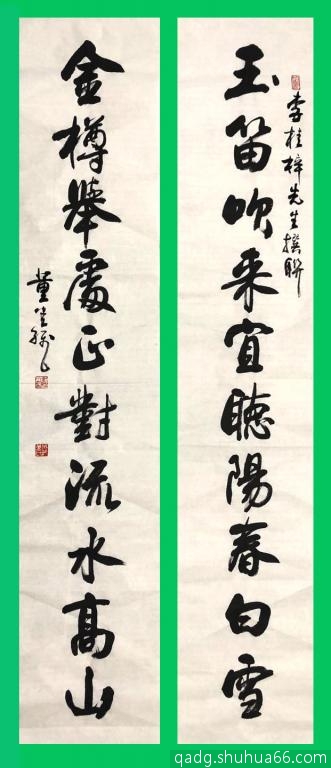 李桂梓先生撰聯
玉笛吹来宜聽陽春白雪
金樽舉處正對流水高山
董
qadg.shuhua66.com